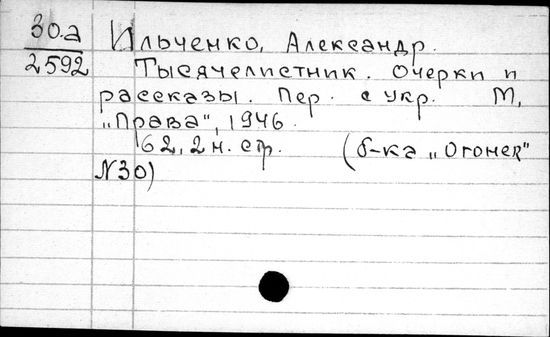 30.а
2592
Ильченко, Александр.
Тысячелистник. Очерки и
рассказы. Пер. с укр. М,
„Права", 1946.
62, 2 н. стр. (б-ка „Огонек"
№30)